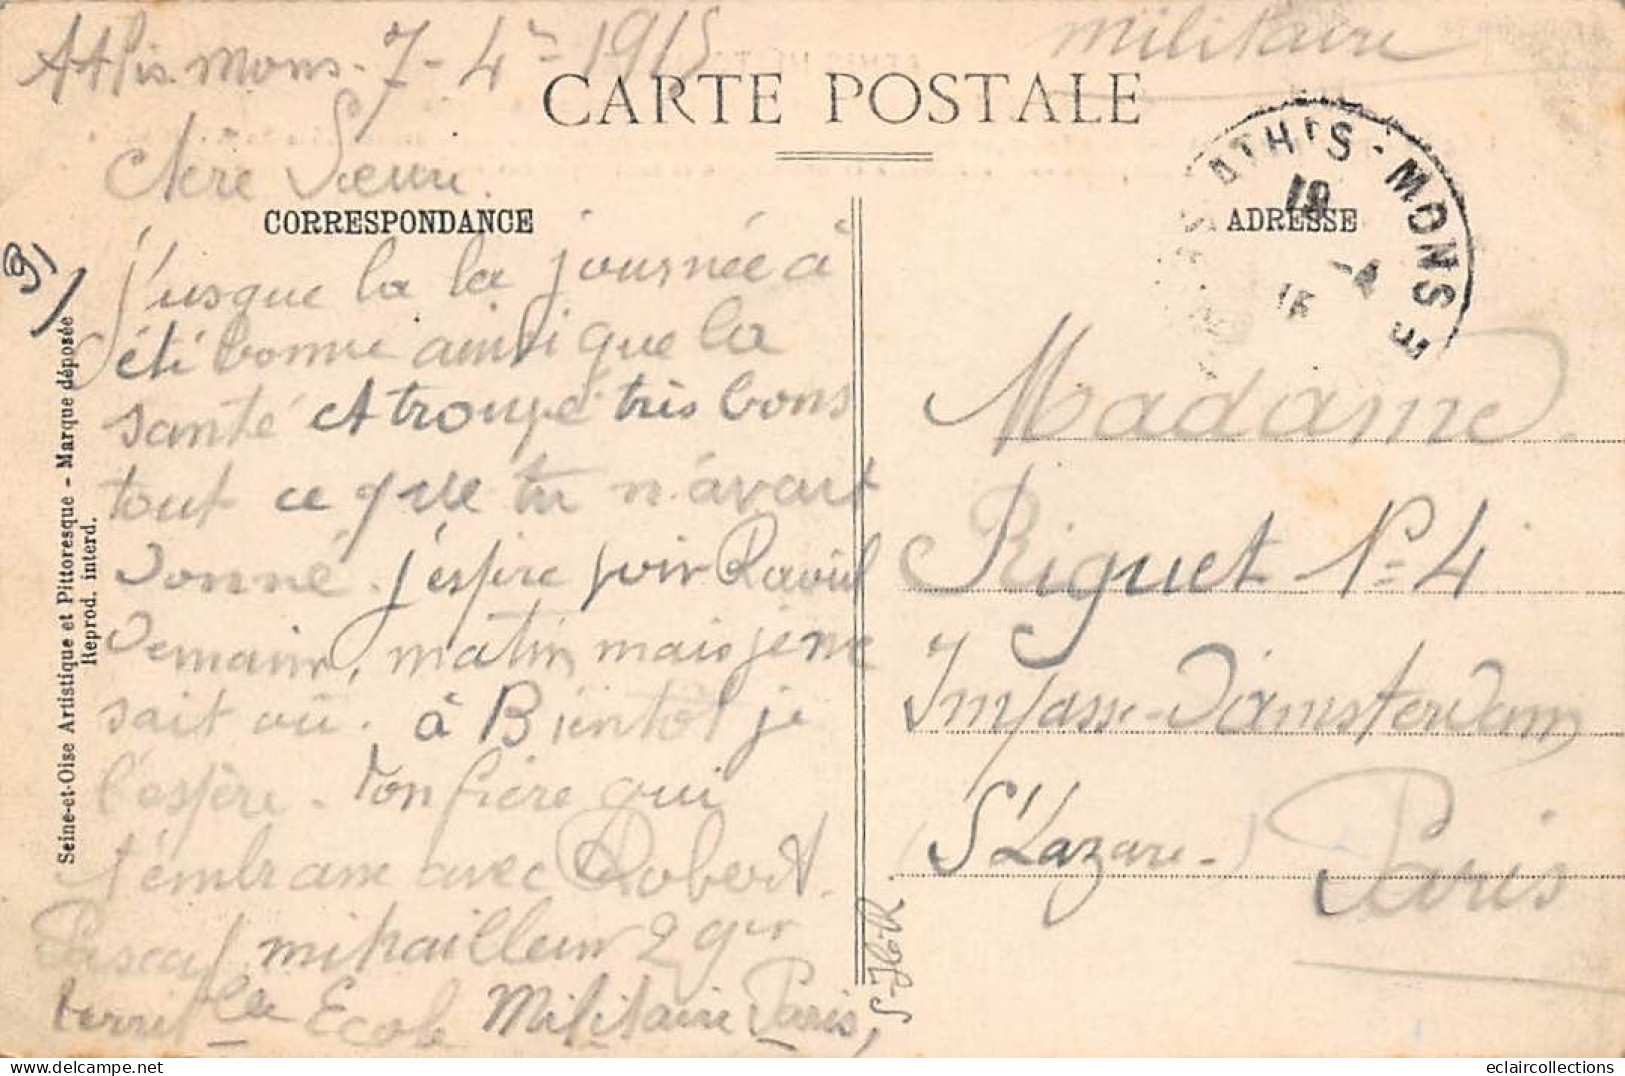 Athis-mons-7-4re 1915
militaire
CARTE POSTALE
chère Sœur.
ATHIS-MONS
19
-4
15
CORRESPONDANCE
ADRESSE
91
j'usque la la journée à
été bonne ainsi que la
santé et trouvé très bons
tout ce que tu n'avait
donné. j'espère voir Raoul
demain, matin mais je ne
sait où. à Bientôt je
l'espère. Ton frère qui
t'embrasse avec Robert.
mitrailleur 2 ger
territ le Ecole Militaire Paris,
Madame
Riguet N° 4
Impasse-d'amsterdam
(St Lazare-)
Paris
Seine-et-Oise Artistique et Pittoresque - Marque déposée
Reprod. interd.
S-J66R
eclaircollections